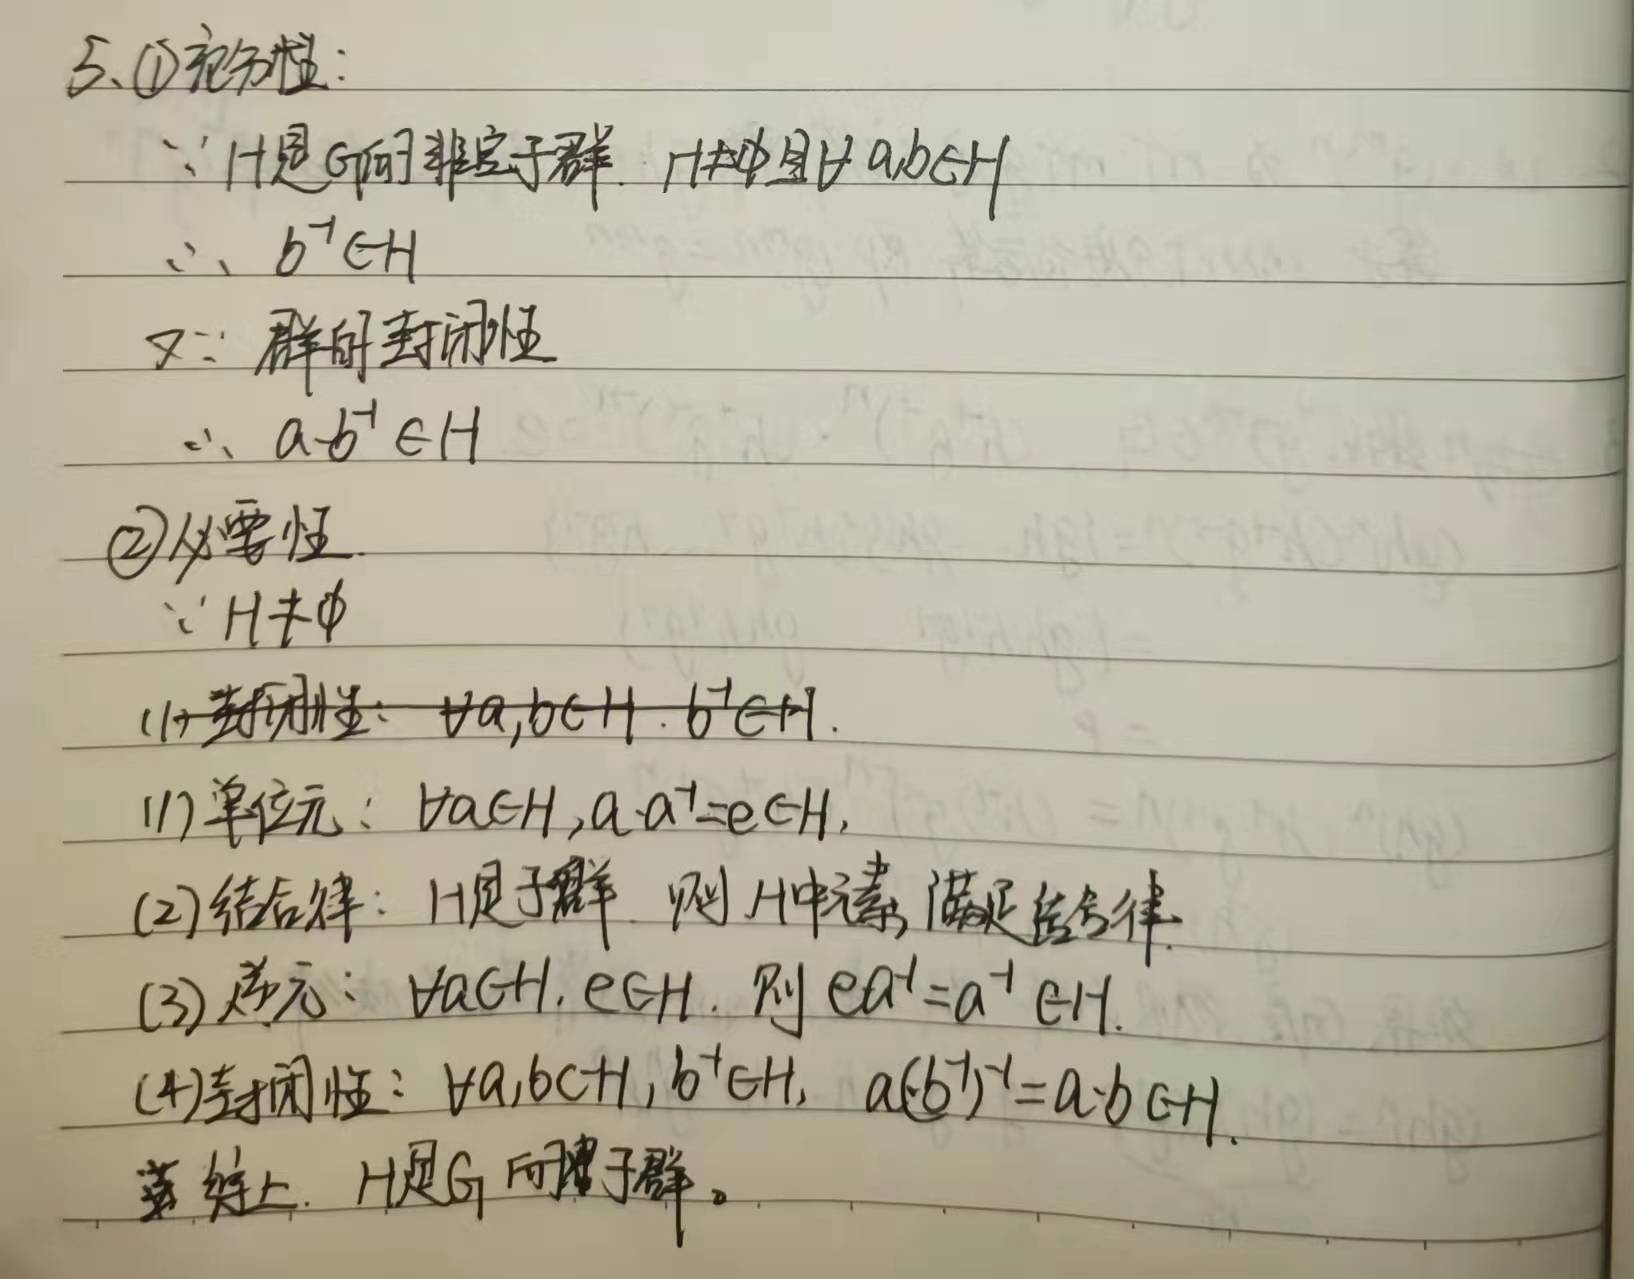 5、①充分性：
∵ H是G的非空子群. H≠φ且∀a,b∈H
∴ b⁻¹∈H
又∵ 群的封闭性
∴ a·b⁻¹∈H
②必要性.
∵ H≠φ
(1) 封闭性： ∀a,b∈H. b⁻¹∈H.
(1) 单位元： ∀a∈H, a·a⁻¹=e∈H,
(2) 结合律： H是子群. 则H中元素满足结合律.
(3) 逆元： ∀a∈H, e∈H. 则 ea⁻¹=a⁻¹∈H.
(4) 封闭性： ∀a,b∈H, b⁻¹∈H, a(b⁻¹)⁻¹=a·b∈H.
综上. H是G的子群。